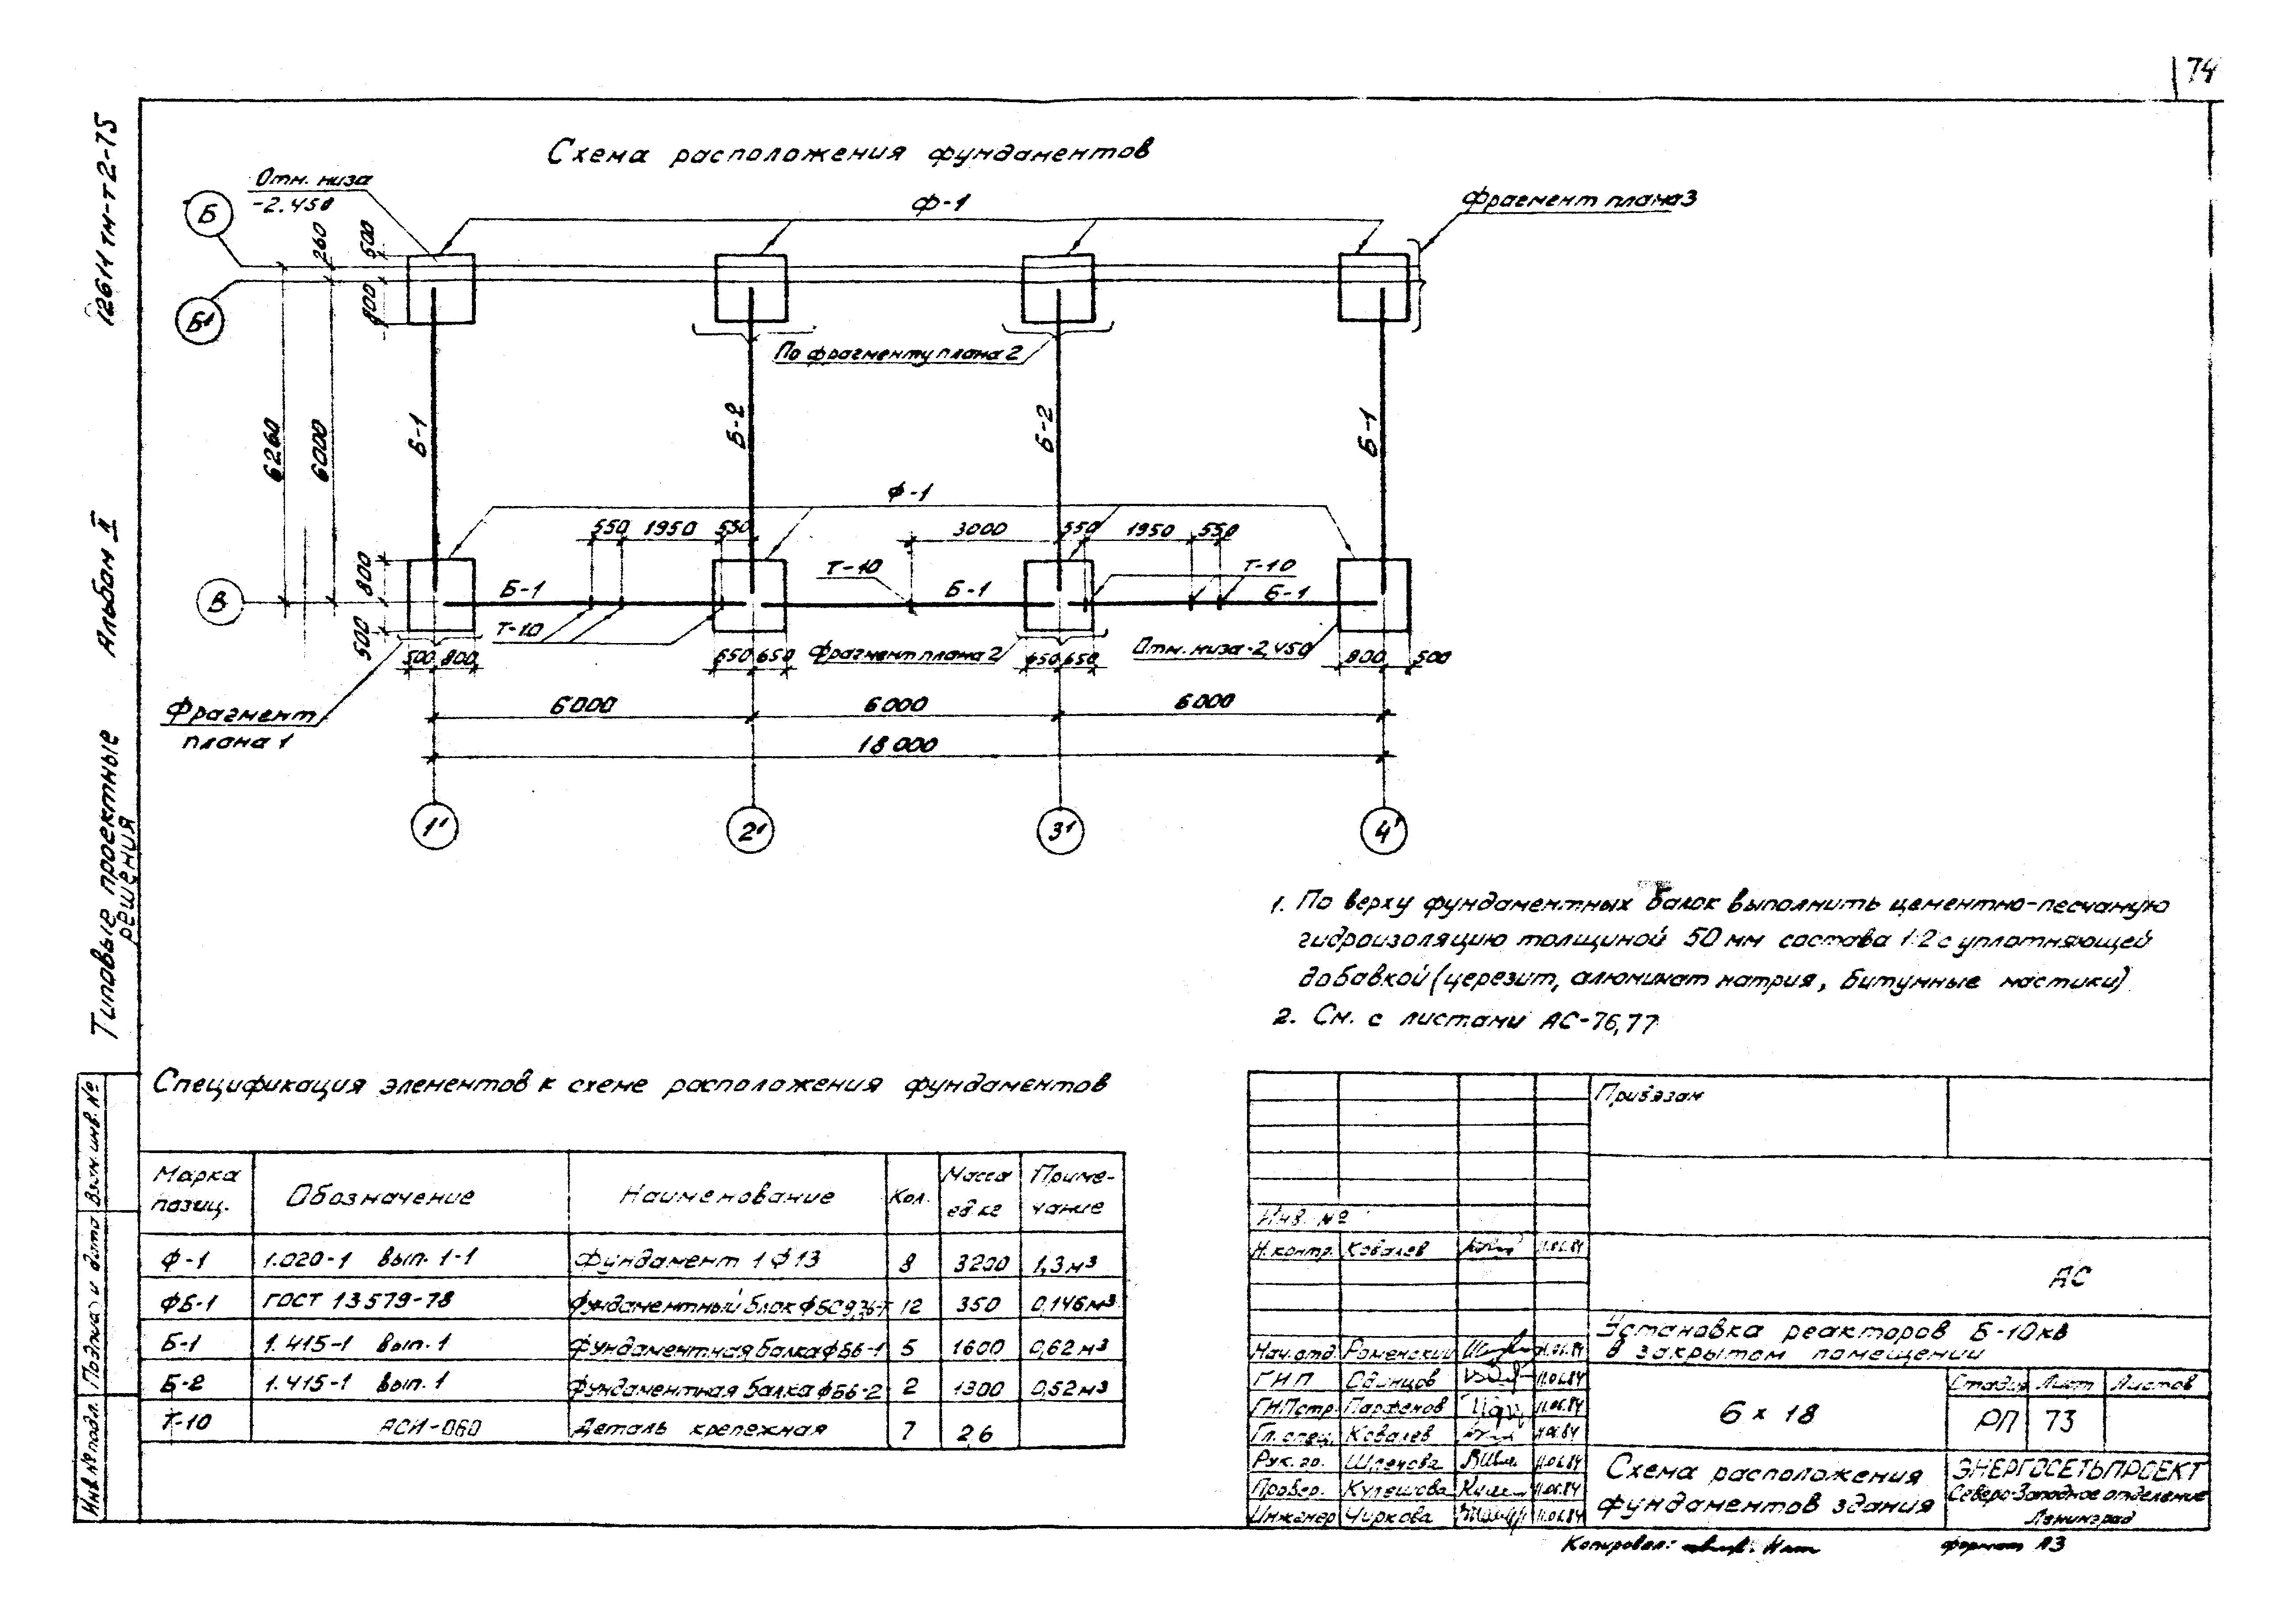 74
12611тм-т2-75
Альбом II
Типовые проектные
решения
Схема расположения фундаментов
Отн. низа
-2.450
Б
Б'
В
260
500
800
Ф-1
Фрагмент плана 3
По фрагменту плана 2
6260
6000
Б-1
Б-2
Б-2
Б-1
Ф-1
550 1950 550
3000
550 1950 550
800
500
Б-1
Т-10
Т-10
Б-1
Т-10
Б-1
500 800
650 650
Фрагмент плана 2
650 650
Отн. низа -2,450
800 500
Фрагмент
плана 1
6000
6000
6000
18000
1'
2'
3'
4'
1. По верху фундаментных балок выполнить цементно-песчаную
гидроизоляцию толщиной 50 мм состава 1:2 с уплотняющей
добавкой (церезит, алюминат натрия, битумные мастики)
2. См. с листами АС-76,77
Спецификация элементов к схеме расположения фундаментов
Марка позиц. Обозначение Наименование Кол. Масса ед кг Примечание
Ф-1 1.020-1 вып. 1-1 Фундамент 1Ф13 8 3200 1,3м³
ФБ-1 ГОСТ 13579-78 Фундаментный блок 12 350 0,146м³
Б-1 1.415-1 вып. 1 Фундаментная балка ФБ6-1 5 1600 0,62м³
Б-2 1.415-1 вып. 1 Фундаментная балка ФБ6-2 2 1300 0,52м³
Т-10 АСИ-060 Деталь крепежная 7 2,6
Инв № подл. Подпись и дата Взам. инв. №
Привязан
Инв. №
Н. контр. Ковалев 11.06.84
АС
Установка реакторов Б-10кв
в закрытом помещении
Нач. отд. Роменский 11.06.84
ГНП Одинцов 11.06.84
ГНПстр. Парфенов 11.06.84
Гл. спец. Ковалев 11.06.84
Рук. гр. 11.06.84
Провер. Кулешова 11.06.84
Инженер Чиркова 11.06.84
6 x 18
Стадия Лист Листов
РП 73
Схема расположения
фундаментов здания
ЭНЕРГОСЕТЬПРОЕКТ
Северо-Западное отделение
Ленинград
Копировал:
формат А3